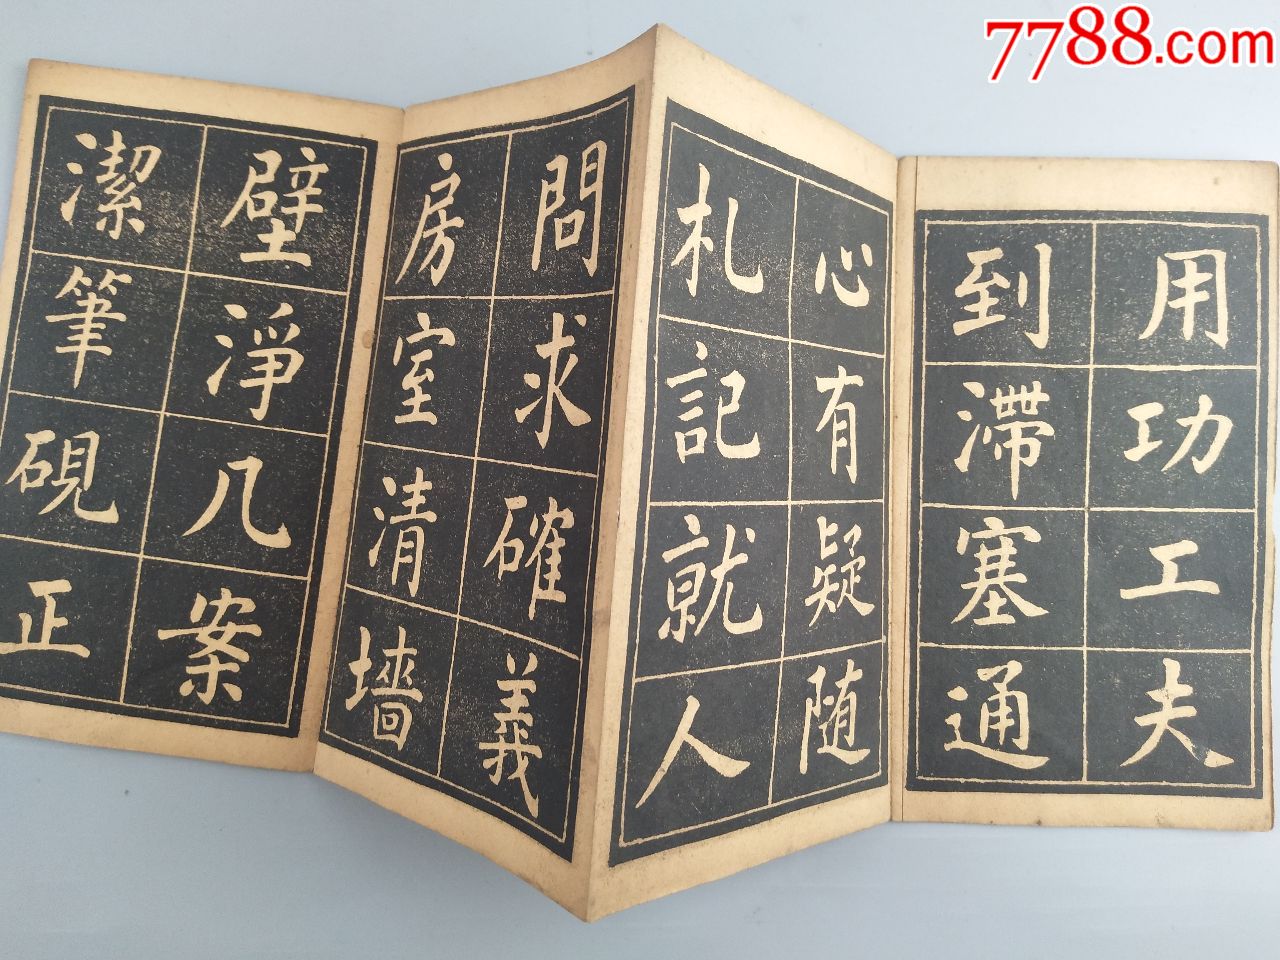 7788.com
用功工夫
到滞塞通
心有疑随
札記就人
問求確義
房室清墙
壁淨几案
潔筆硯正